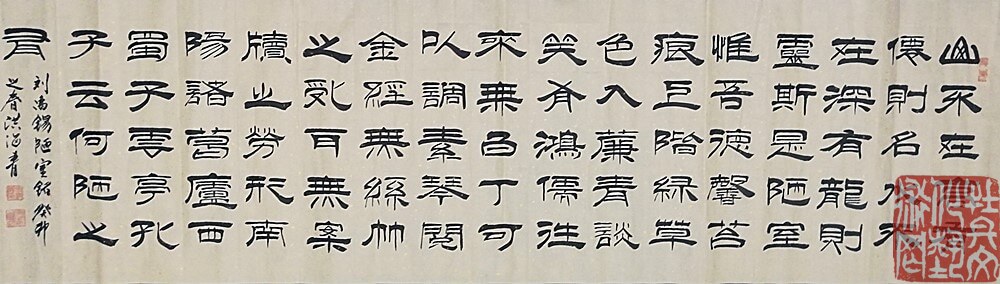 山不在
僊則名水不
在深有龍則
靈斯是陋室
惟吾德馨苔
痕上階緑草
色入簾青談
笑有鴻儒往
來無白丁可
以調素琴閱
金經無絲竹
之亂耳無案
牘之勞形南
陽諸葛廬西
蜀子雲亭孔
子云何陋之
有
刘禹锡陋室铭癸卯
之春洪海青